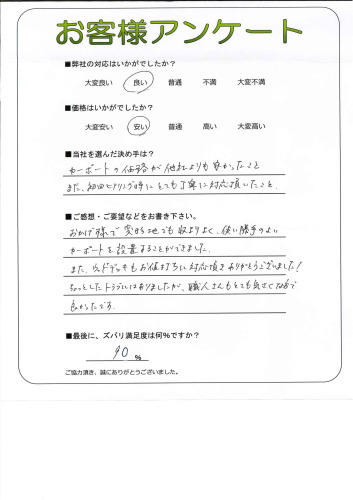 お客様アンケート
■弊社の対応はいかがでしたか?
大変良い 良い 普通 不満 大変不満
■価格はいかがでしたか?
大変安い 安い 普通 高い 大変高い
■当社を選んだ決め手は?
カーポートの価格が他社よりも安かったこと
また、初回ヒアリング時にとても丁寧に対応頂いたこと
■ご感想・ご要望などをお書き下さい。
おかげ様で変形地でも収りよく、使い勝手のよい
カーポートを設置することができました。
また、ウッドデッキもお値打ちに対応頂きありがとうございました!
ちょっとしたトラブルはありましたが、職人さんもとても気さくな方で
良かったです。
■最後に、ズバリ満足度は何%ですか?
90 %
ご協力頂き、誠にありがとうございました。